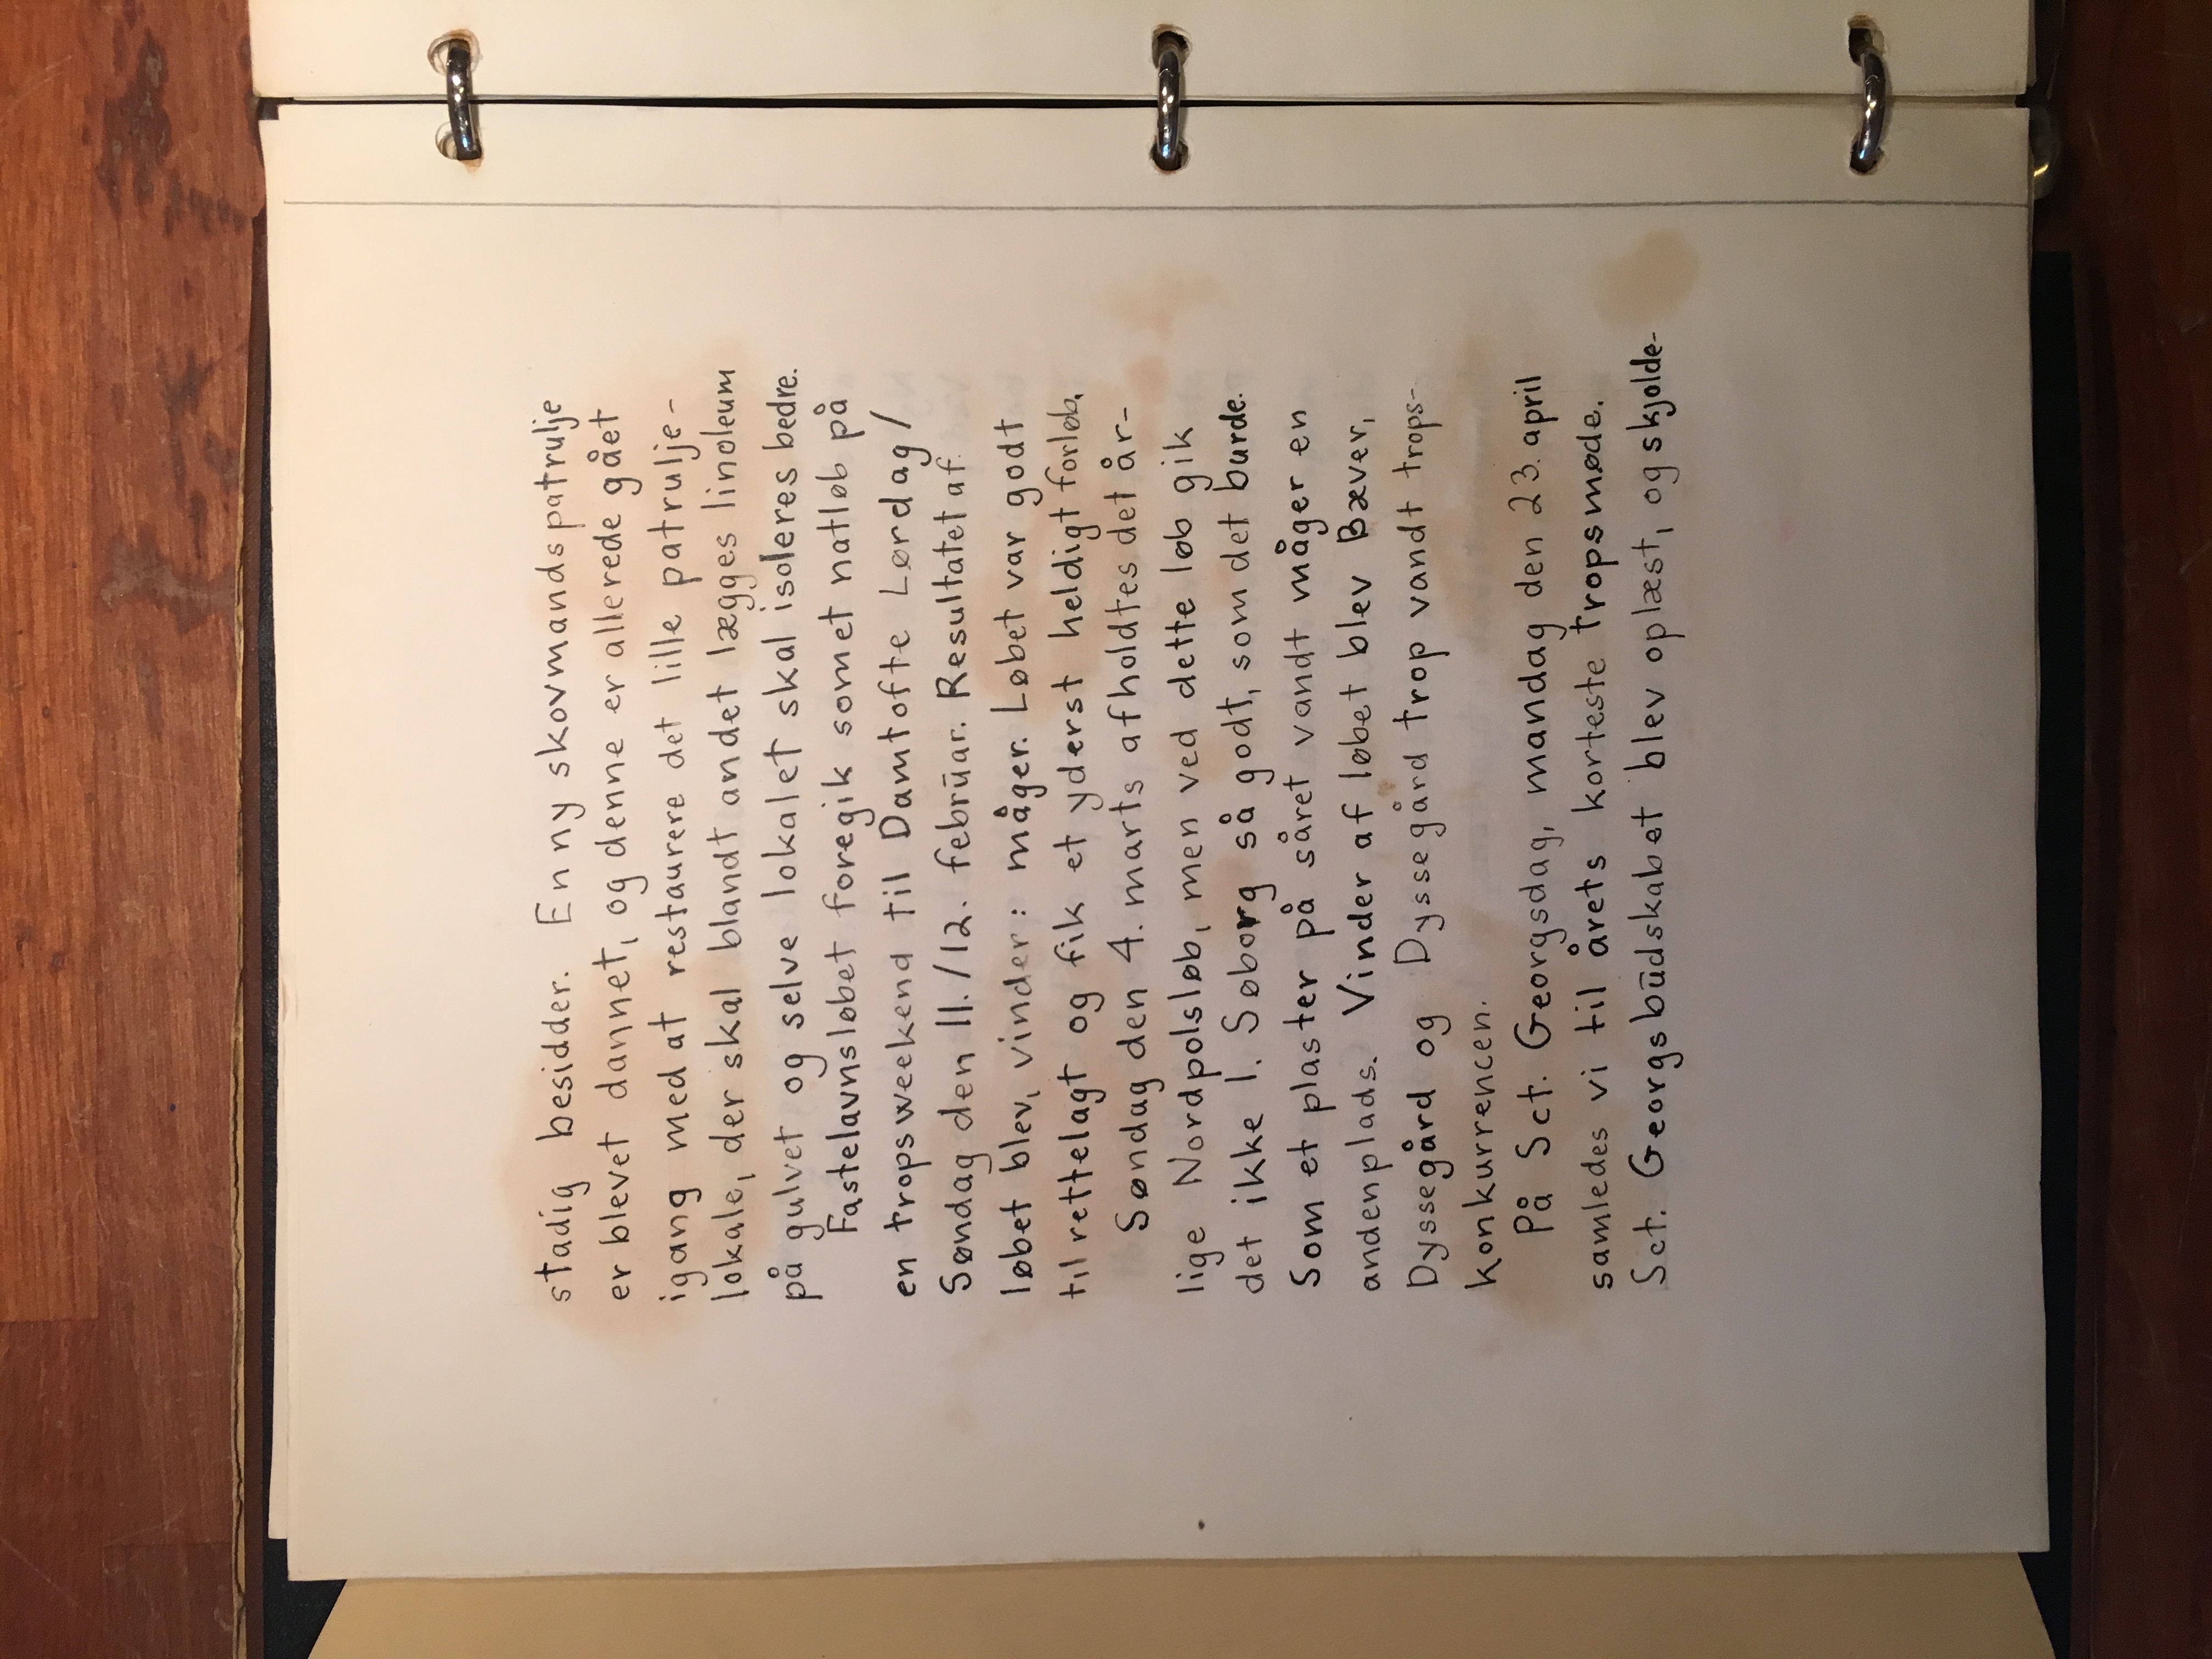 stadig besidder. En ny skovmandspatrulje
er blevet dannet, og denne er allerede gået
igang med at restaurere det lille patrulje-
lokale, der skal blandt andet lægges linoleum
på gulvet og selve lokalet skal isoleres bedre.
Fastelavnsløbet foregik som et natløb på
en tropsweekend til Damtofte Lørdag/
Søndag den 11./12. februar. Resultatet af
løbet blev, vinder: måger. Løbet var godt
tilrettelagt og fik et yderst heldigt forløb.
Søndag den 4. marts afholdtes det år-
lige Nordpolsløb, men ved dette løb gik
det ikke 1. Søborg så godt, som det burde.
Som et plaster på såret vandt måger en
andenplads. Vinder af løbet blev Bæver,
Dyssegård og Dyssegård trop vandt trops-
konkurrencen.
På Sct. Georgsdag, mandag den 23. april
samledes vi til årets korteste tropsmøde.
Sct. Georgsbudskabet blev oplæst, og skjolde-